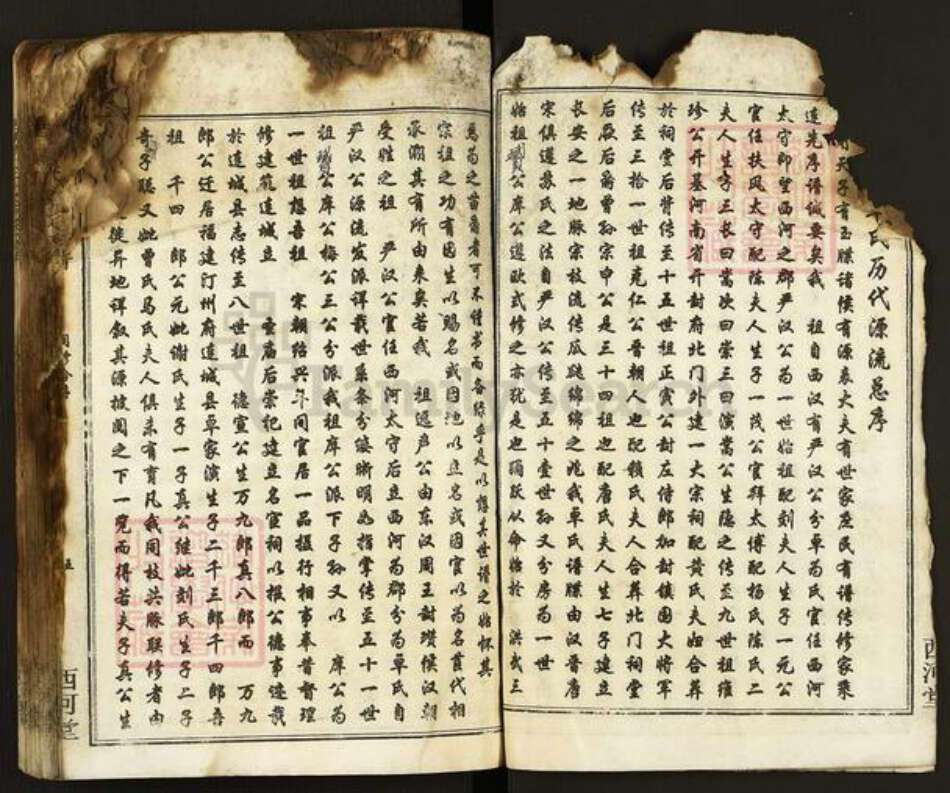 氏历代源流总序
天子有玉牒诸侯有源表大夫有世家庶民有谱传修家乘
造先序谱诚要矣我 祖自西汉有严汉公分卓为氏官任西河
太守即望西河之郡严汉公为一世始祖配刘夫人生子一元公
官任扶风太守配陈夫人生子一茂公官拜太傅配杨氏陈氏二
夫人生子三长曰嵩次曰崇三曰演嵩公生隐之传至九世祖维
珍公开基河南省开封府北门外建一大宗祠配黄氏夫妇合葬
于祠堂后背传至十五世祖正贲公封左侍郎加封镇国大将军
传至三拾一世祖克仁公晋朝人也配赖氏夫人合葬北门祠堂
后厥后爵曾孙宗申公是三十四祖也配唐氏夫人生七子建立
长安之一地脉宗枝流传瓜瓞绵绵之兆我卓氏谱牒由汉晋唐
宋俱遵苏氏之法自严汉公传至五十壹世孙又分房为一世
始祖 公库公遵欧式修之亦犹是也 跃以命始于 洪武三
为之苗裔者可不 书而备录乎是以想其世谱之始怀其
宗祖之功有因生以赐名或因地以立名或因官以为名芗代相
承溯其有所由来矣若我 祖逊产公由东汉周王封瓒侯汉朝
受姓之祖 严汉公官任西河太守后立西河为郡分为卓氏自
严汉公源流发派详载世系条分缕晰明如指掌传至五十一世
祖 公库公梅公三公分派我祖库公派下子孙又以 库公为
一世祖想吾祖 宋朝绍兴年间官居一品摄行相事奉昔督理
修建 连城立 圣庙后崇祀建立名宦祠以报公德事迹载
于连城县志传至八世祖 德宣公生万九郎真八郎而 万九
郎公迁居福建汀州府连城县草家演生子二千三郎千四郎吾
祖 千四 郎公元妣谢氏生子一子真公继妣刘氏生子二子
奇子聪又妣曾氏马氏夫人俱未有育凡我同枝共脉联修者由
徙异地详叙其源披阅之下一览而得若夫子真公生
五
西河堂
西河堂